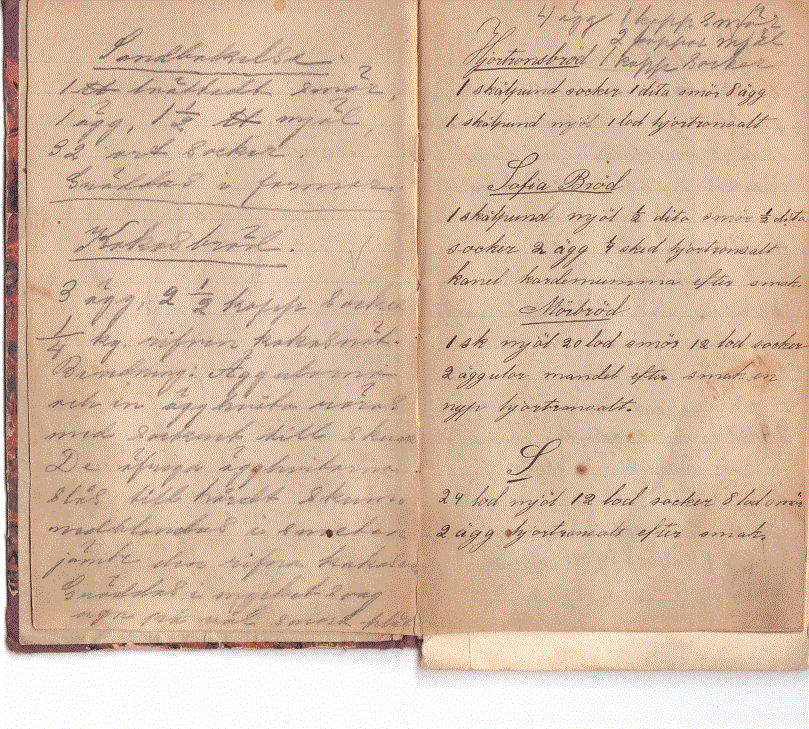 Sandbakelse.
1 ℔ tvättadt smör,
1 ägg, 1 1/2 ℔ mjöl,
32 ort socker.
Gräddas i formar.
Kokosbröd.
3 ägg, 2 1/2 kopp socker
1/4 kg. rifven kokosnöt.
Beredning: Äggulorna
och en ägghvita röras
med sockret till skum
De öfriga ägghvitorna
slås till hårdt skum,
nedblandas i smeten
jämte den rifna kokosen
Gräddas i mycket svag
ugn på väl smord plåt
4 ägg 1 kopp smör
2 koppar mjöl
1 kopp socker
Hjortronsbröd
1 skålpund socker 1 dita smör 8 ägg
1 skålpund mjöl 1 lod hjortronsalt
Sofia Bröd
1 skålpund mjöl 1/2 dita smör 1/2 dita
socker 2 ägg 1/4 sked hjortronsalt
kanel kardemumma efter smak
Mörbröd
1 sk mjöl 20 lod smör 12 lod socker
2 äggulor mandel efter smak en
nyp hjortronsalt.
S
24 lod mjöl 12 lod socker 8 lod smör
2 ägg hjortronsalt efter smak.